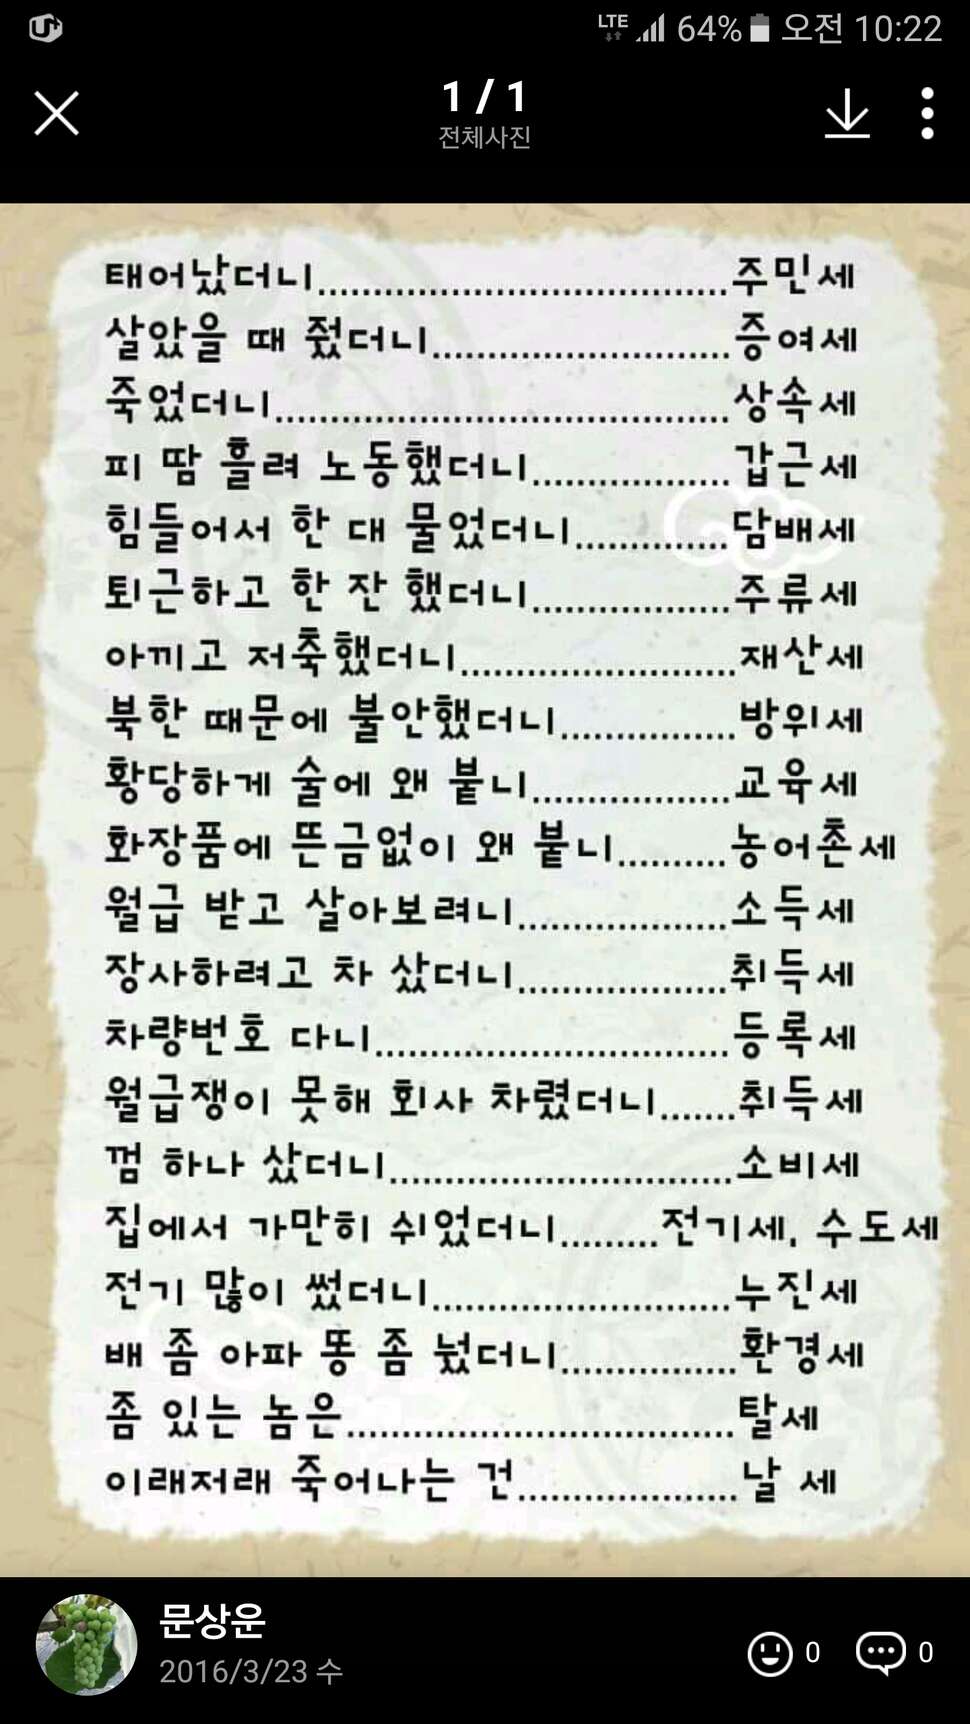 LTE 64% 오전 10:22
1 / 1
전체사진
태어났더니..........................................주민세
살았을 때 줬더니..............................증여세
죽었더니..............................................상속세
피 땀 흘려 노동했더니....................갑근세
힘들어서 한 대 물었더니................담배세
퇴근하고 한 잔 했더니....................주류세
아끼고 저축했더니............................재산세
북한 때문에 불안했더니..................방위세
황당하게 술에 왜 붙니....................교육세
화장품에 뜬금없이 왜 붙니...........농어촌세
월급 받고 살아보려니.....................소득세
장사하려고 차 샀더니.....................취득세
차량번호 다니....................................등록세
월급쟁이 못해 회사 차렸더니........취득세
껌 하나 샀더니...................................소비세
집에서 가만히 쉬었더니..........전기세, 수도세
전기 많이 썼더니..............................누진세
배 좀 아파 똥 좀 눴더니..................환경세
좀 있는 놈은.......................................탈세
이래저래 죽어나는 건......................날 세
문상운
2016/3/23 수
0 0